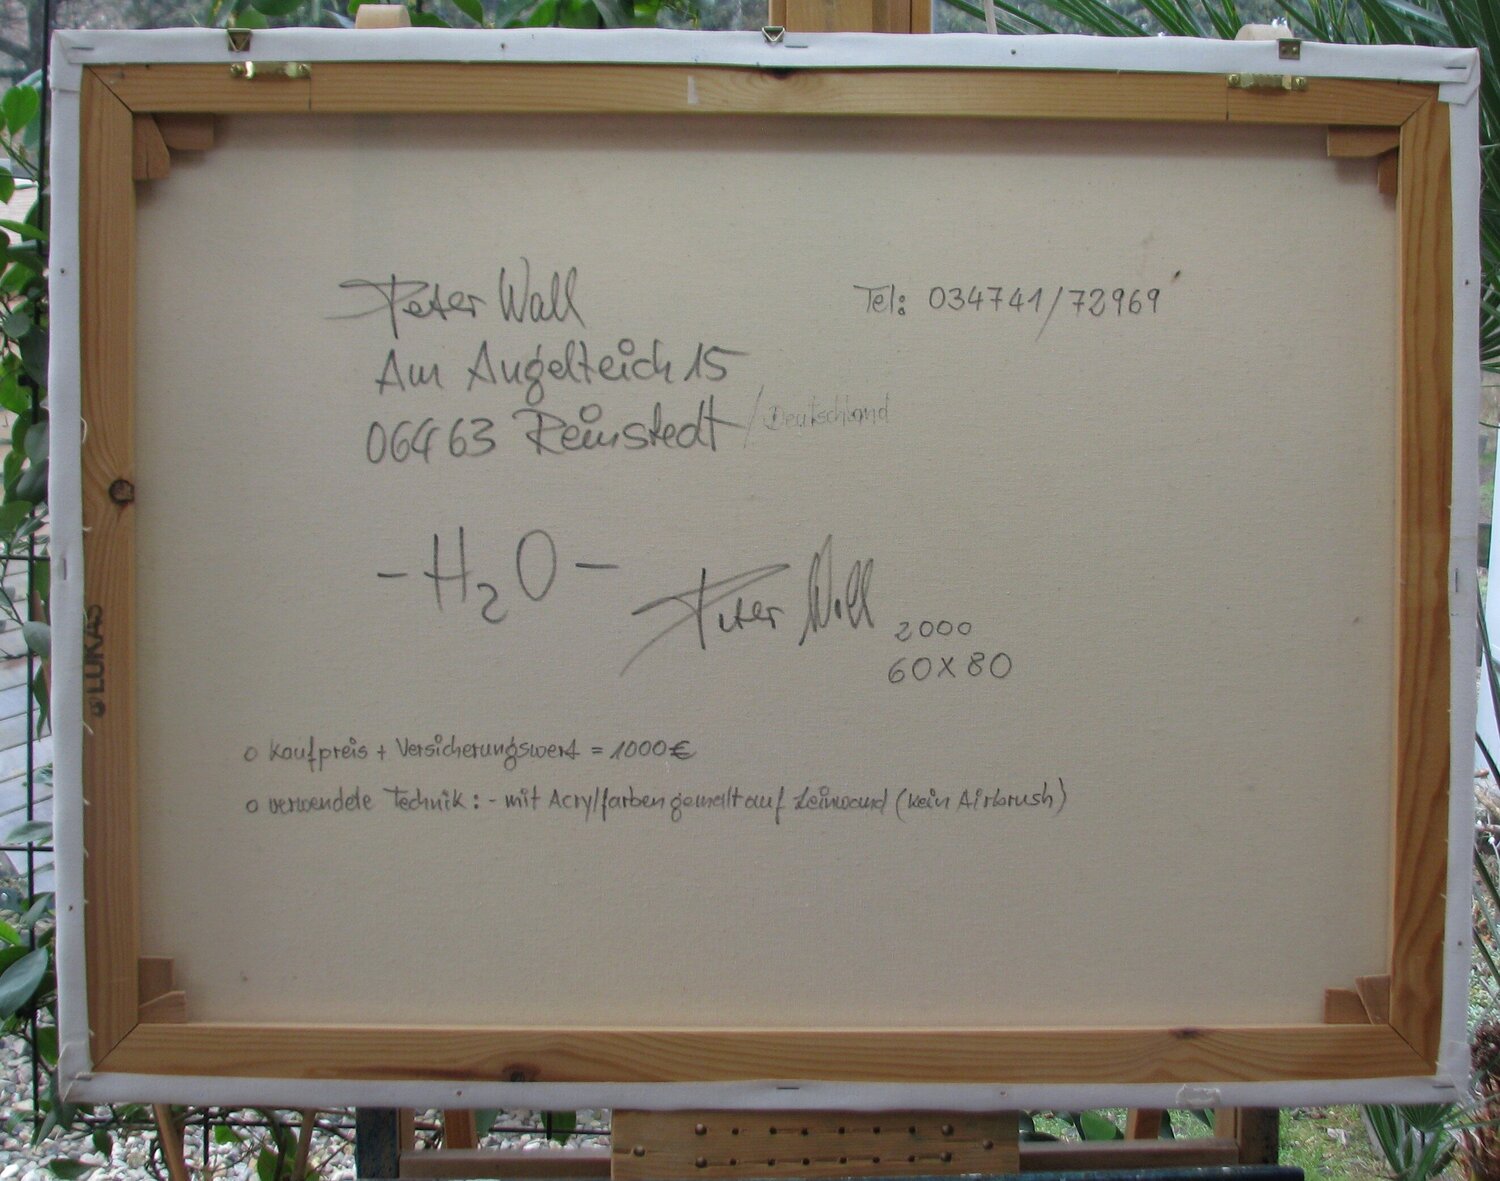 Peter Wall
Tel: 034741/72969
Am Angelteich 15
06463 Reinstedt / Deutschland
- H₂O -
Peter Wall
2000
60 x 80
o Kaufpreis + Versicherungswert = 1000 €
o verwendete Technik: - mit Acrylfarben gemalt auf Leinwand (kein Airbrush)
LUKAS